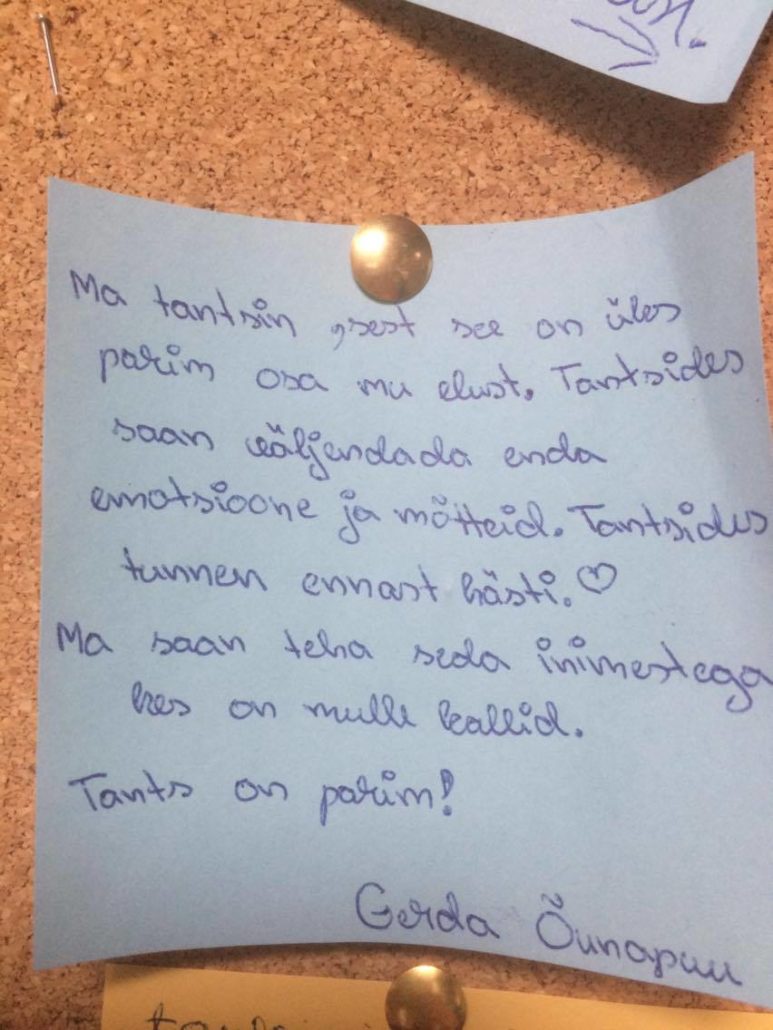 Ma tantsin ,sest see on üles
parim osa mu elust. Tantsides
saan väljendada enda
emotsioone ja mõtteid. Tantsides
tunnen ennast hästi.♡
Ma saan teha seda inimestega
kes on mulle kallid.
Tants on parim!
Gerda Õunapuu